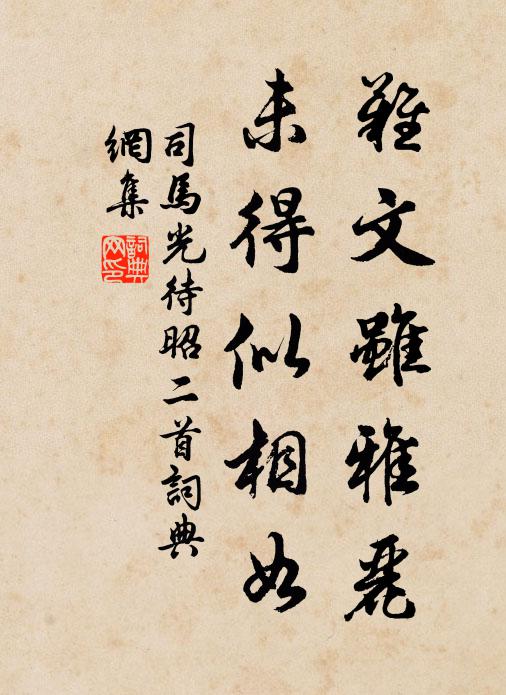 難文雖雅麗
未得似相如
司馬光待昭二首詞典
網集
詞典
网印